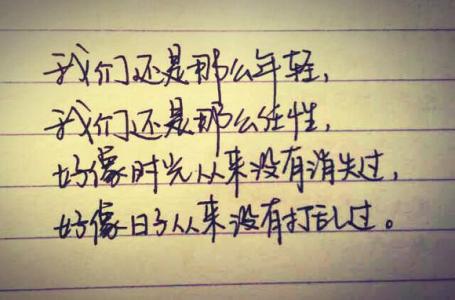 我们还是那么年轻，
我们还是那么任性，
好像时光从来没有消失过，
好像日子从来没有打乱过。